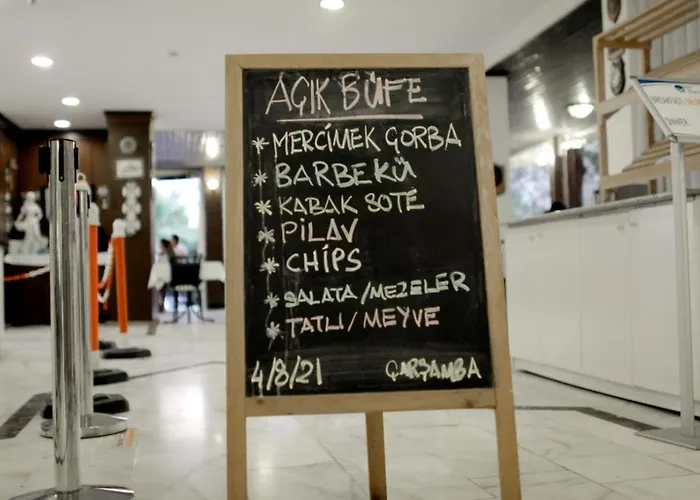 AÇIK BÜFE
* MERCİMEK ÇORBA
* BARBEKÜ
* KABAK SOTE
* PİLAV
* CHİPS
* SALATA/MEZELER
* TATLI/MEYVE
4/8/21 ÇARŞAMBA